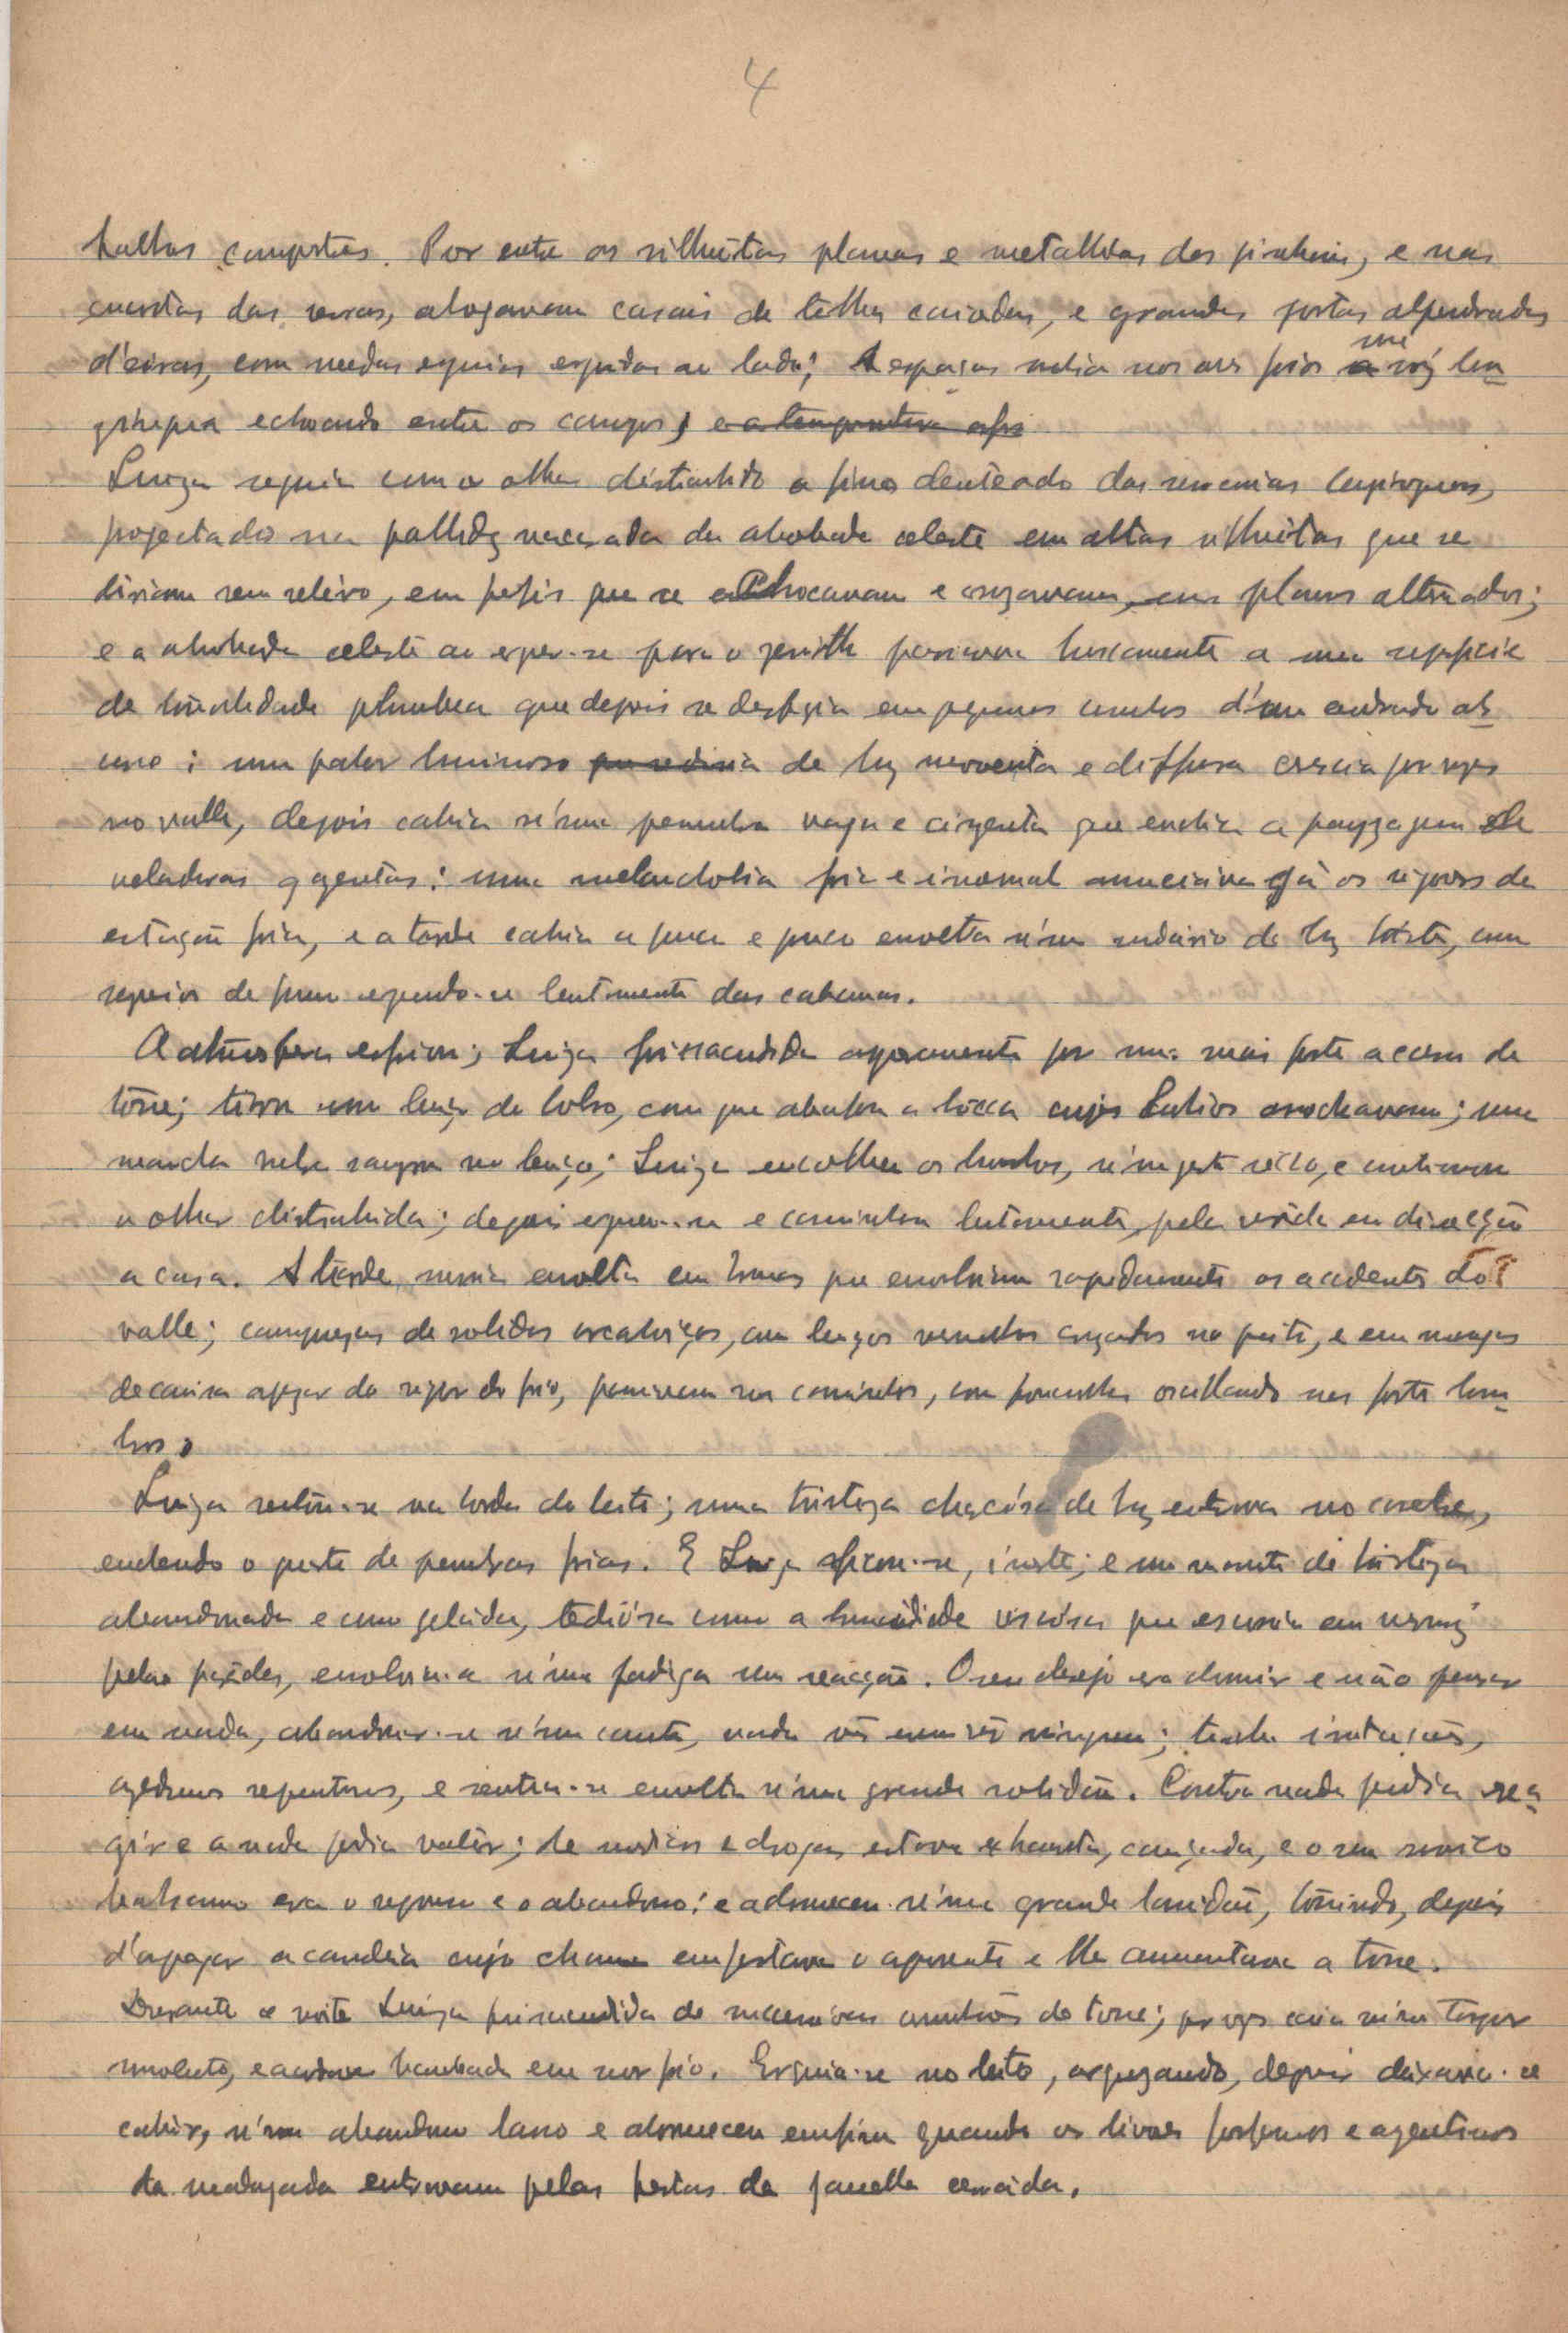 4
balhos campestres. Por entre as silhuêtas planas e metallicas dos pinheiros, e nas
encostas das serras, alvejavam casais de telha caiadas, e grandes portas alpendradas
d'eiras, com medas esguias erguidas ao lado; A espaços subia nos ares frios uma voz lon-
gínqua echoando entre os campos, e a temperatura
Luiza seguia com o olhar distrahido o fino denteado das serranias longínquas,
projectado na pallidez nacarada da abobada celeste em altas silhuêtas que se
diriam sem relêvo, em perfis que se chocavam e cruzavam, em planos alternados;
e a abobada celeste ao erguer-se para o zenith passava bruscamente a uma
de tonalidade plumbea que depois se desfazia em pequenos cumulos d'um
uma; um palor luminoso de luz nevoenta e diffusa crescia por vezes
no valle, depois cahia n'uma penumbra vaga e cinzenta que enchia a payzagem de
veladuras; uma melancholia fria e invernal annunciava já os rigores da
estação fria, e a tarde cahia a pouco e pouco envolta n'um sudário de luz triste, com
de fumo erguendo-se lentamente das cabanas.
A atmosfera esfriou; Luiza foi sacudida asperamente por um mais forte accesso de
tosse; tirou um lenço do bolso, com que abafou a bôcca cujos labios arroxeavam; uma
mancha rubra no lenço; Luiza encolheu os hombros, n'um gesto sêcco, e continuou
a olhar distrahida; depois ergueu-se e caminhou lentamente, pela verêda em direcção
a casa. A tarde morria envolta em brumas que envolviam rapidamente os accidentes do
valle; camponezas de solidos arcabouços, com lenços vermelhos cruzados no peito, e em mangas
de camisa apezar do rigor do frio, passavam nos caminhos, com oscillando nos fortes hom-
bros.
Luiza sentou-se na borda do leito; uma tristeza de luz no
enchendo o quarto de penumbras frias. E Luiza ficou-se, inerte; e uma de tristeza
abandonada e como gelada, tediósa como a humidade viscósa que escorria em
pelas parêdes, envolvia-a n'uma fadiga sem reacção. O seu desejo era dormir e não pensar
em nada, abandonar-se n'um canto, nada vêr nem vêr ninguem; tinha irritações,
azedumes repentinos, e sentia-se envolta n'uma grande solidão. Contra nada podia rea-
gir e a nada podia valêr; de medicos e drogas estava exhausta, cançada, e o seu unico
balsamo era o repouso e o abandono; e adormeceu n'uma grande lassidão, tossindo, depois
d'apagar a candeia cujo chama empestava o aposento e lhe aumentava a tosse.
Durante a noite Luiza foi sacudida de successivas convulsões de tosse; por vezes caia n'um torpor
banhada em suor frio. Erguia-se no leito, arquejando, depois deixava-se
cahir, n'um abandono lasso e adormeceu emfim quando os livores e argentinos
da madrugada entravam pelas frestas da janella cerrada.